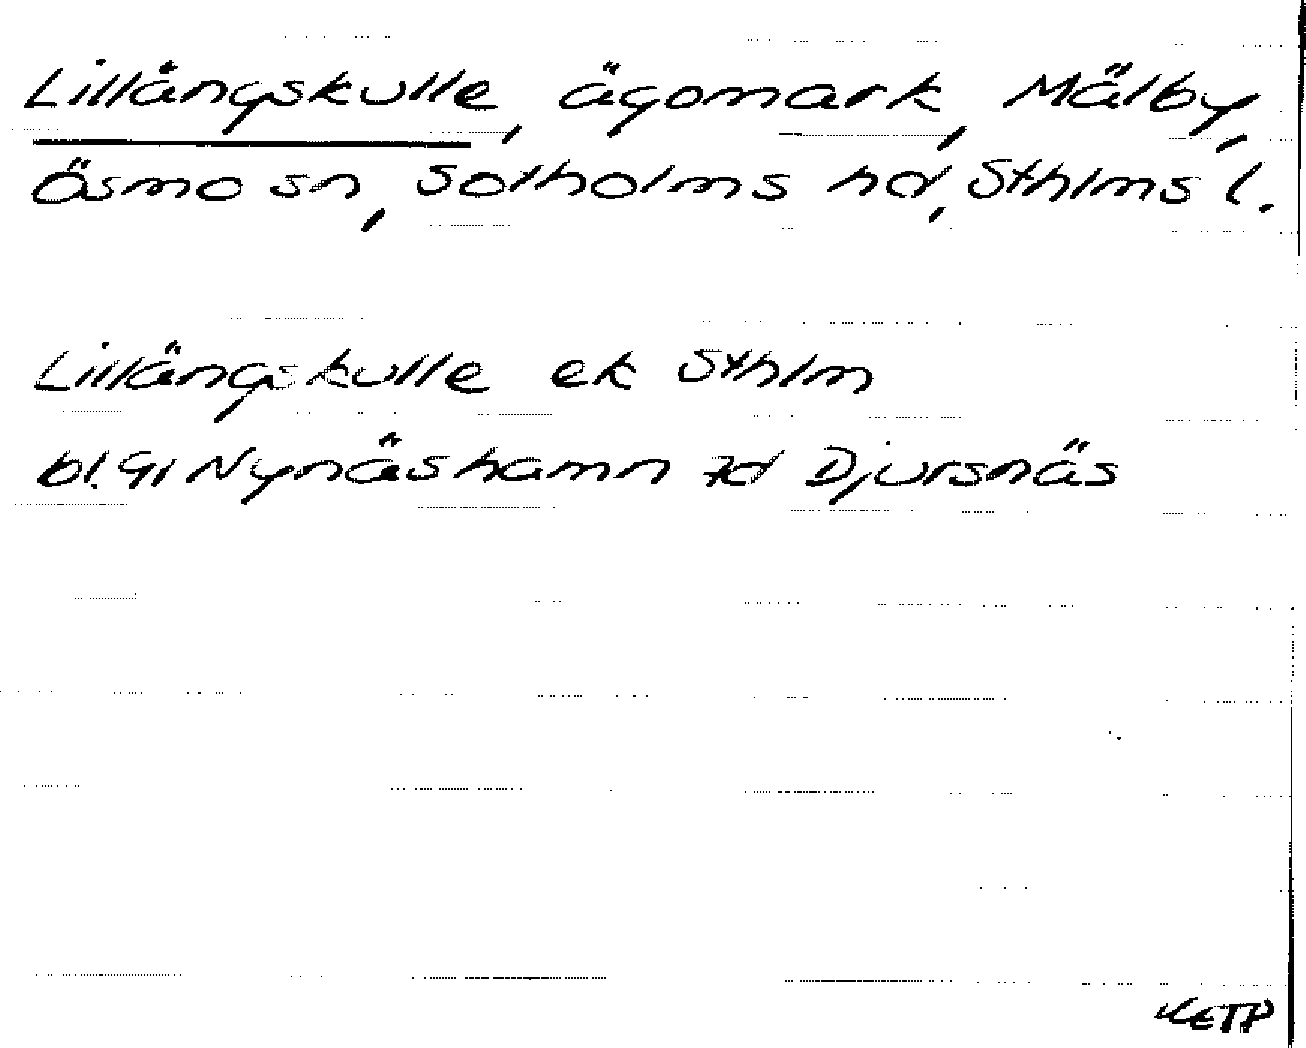 Lillängskulle, ägomark, Mälby,
Ösmo sn, Sotholms hd, Sthlms l.
Lillängskulle ek Sthlm
bl. 91 Nynäshamn 7d Djursnäs